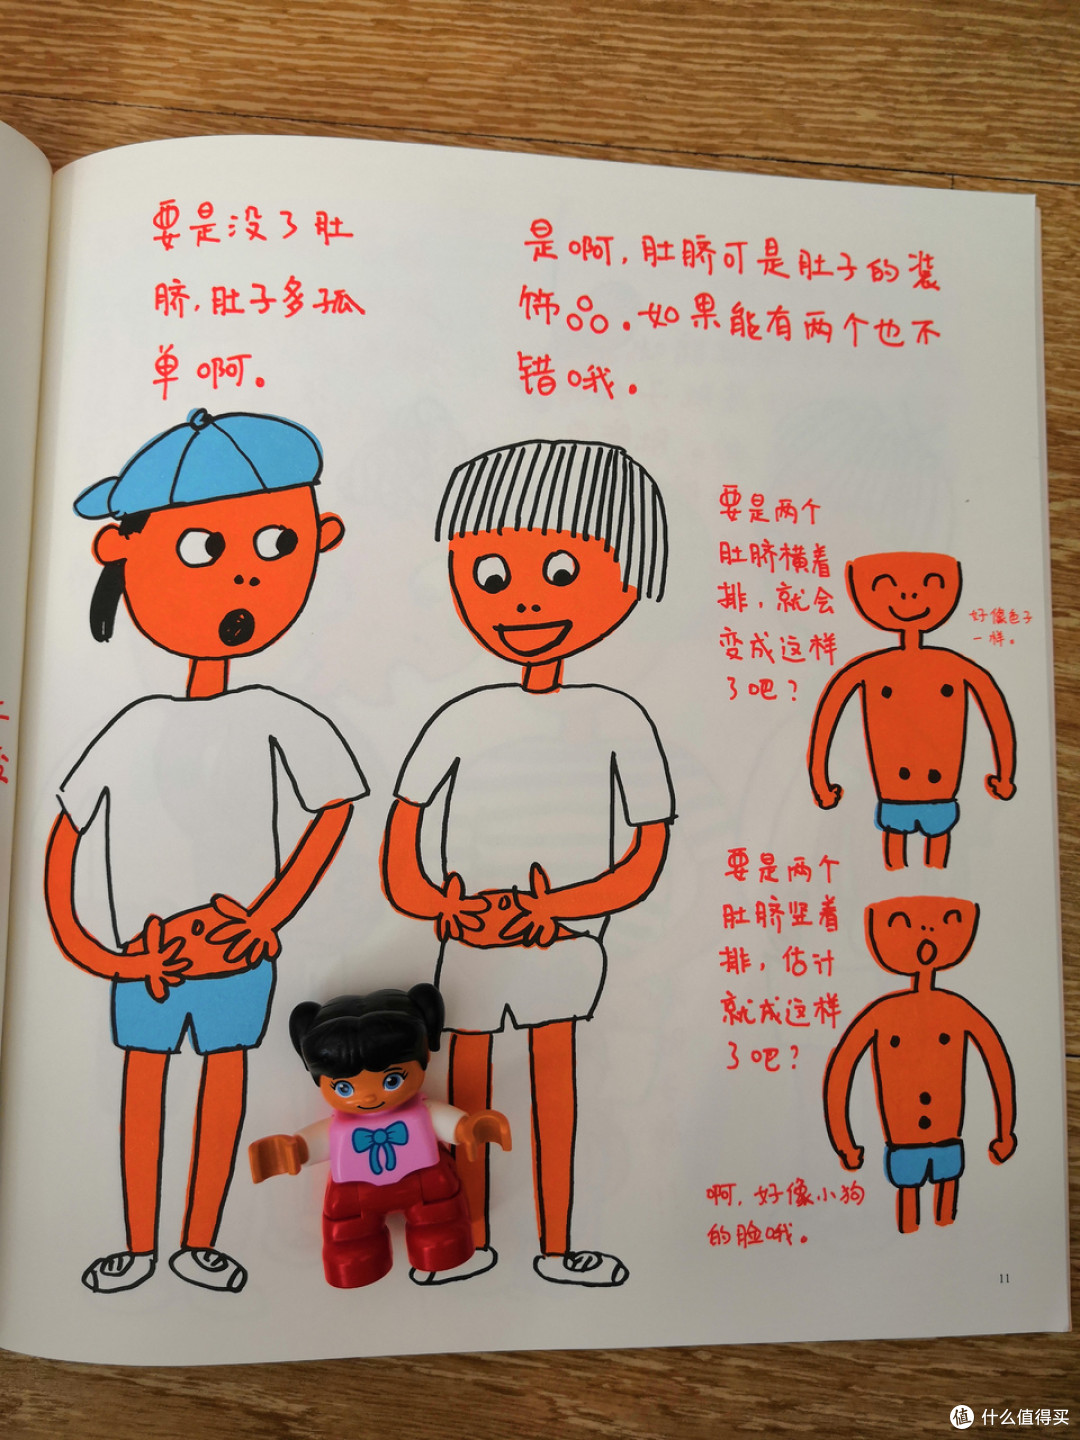 要是没了肚
脐，肚子多孤
单啊。
是啊，肚脐可是肚子的装
饰。如果能有两个也不
错哦。
要是两个
肚脐横着
排，就会
变成这样
了吧？
好像色子
一样。
要是两个
肚脐竖着
排，估计
就成这样
了吧？
啊，好像小狗
的脸哦。
11
值 什么值得买